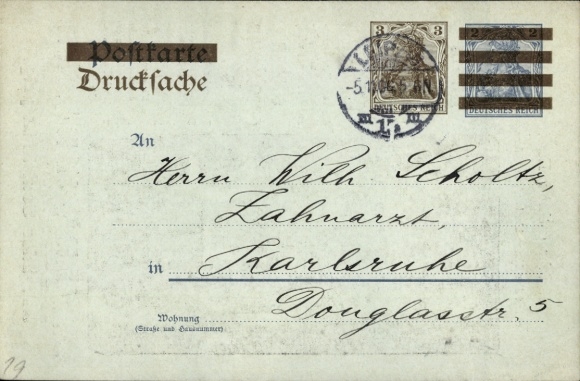 Postkarte
Drucksache
3 3
DEUTSCHES REICH
2 2
DEUTSCHES REICH
An
Herrn Wilh Scholtz,
Zahnarzt,
in Karlsruhe
Douglasstr. 5
Wohnung
(Straße und Hausnummer)
19